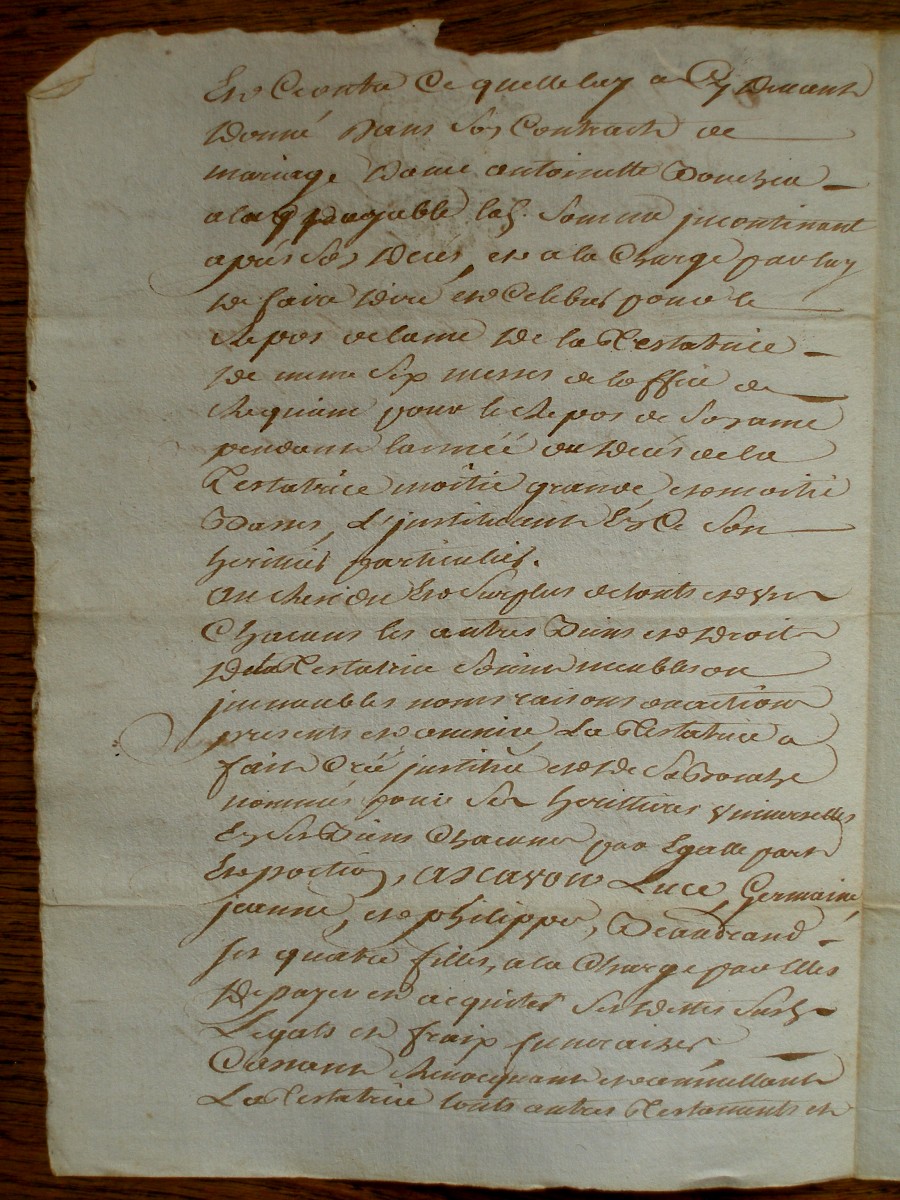 et outre ce quelle luy a cy devant
donné dans son contract de
mariage dame antoinette
payable lad. somme jncontinant
après son decés, et a la charge par luy
de faire dire et celebrer pour le
repos de lame de la Testatrice
de meme six messes de loffice de
Requiem pour le Repos de son ame
pendant lannéé du decés de la
Testatrice moitie grande et moitie
basses, L'jnstituant en ce son
heritier particulier.
au Residu et surplus de touts et un
chacuns les autres biens et droits
de la Testatrice soient meubles ou
jmmeubles noms raisons ou actions
presents et avenir, La Testatrice a
fait créé jnstitué et de sa bouche
nommés pour ses herittieres universelles
en ses biens chacune par Egalle part
et portion, ascavoir Luce, Germaine,
jeanne, et philippe,
ses quatre filles, a la charge par elles
de payer et acquiter ses dettes susd.
Legats et fraix funeraires
Cassant Revocquant et annullant
La Testatrice touts autres Testaments et